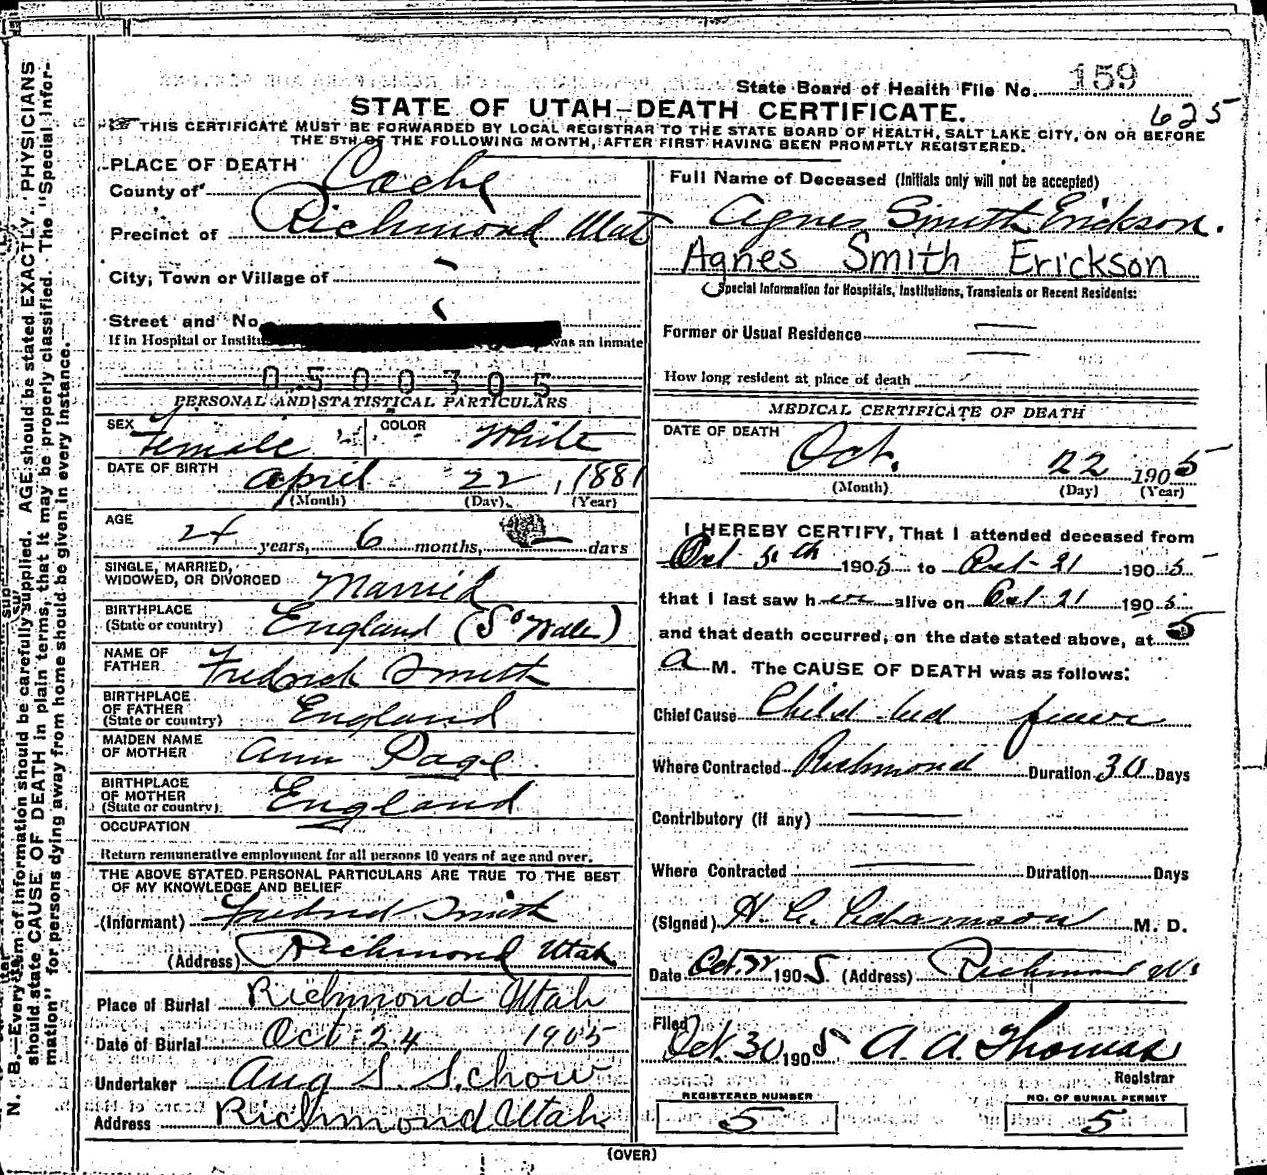 State Board of Health File No. 159
STATE OF UTAH—DEATH CERTIFICATE.
625
THIS CERTIFICATE MUST BE FORWARDED BY LOCAL REGISTRAR TO THE STATE BOARD OF HEALTH, SALT LAKE CITY, ON OR BEFORE
THE 5TH OF THE FOLLOWING MONTH, AFTER FIRST HAVING BEEN PROMPTLY REGISTERED.
PLACE OF DEATH
County of Cache
Precinct of Richmond Utat
City, Town or Village of
Street and No.
If in Hospital or Institu was an inmate
0500305
PERSONAL AND STATISTICAL PARTICULARS
SEX Female COLOR White
DATE OF BIRTH April 22, 1881
(Month) (Day) (Year)
AGE 24 years, 6 months, — days
SINGLE, MARRIED,
WIDOWED, OR DIVORCED Married
BIRTHPLACE
(State or country) England (So Wales)
NAME OF
FATHER Fredrick Smith
BIRTHPLACE
OF FATHER
(State or country) England
MAIDEN NAME
OF MOTHER Ann Page
BIRTHPLACE
OF MOTHER
(State or country) England
OCCUPATION —
Return remunerative employment for all persons 10 years of age and over.
THE ABOVE STATED PERSONAL PARTICULARS ARE TRUE TO THE BEST
OF MY KNOWLEDGE AND BELIEF
(Informant) Fredrick Smith
(Address) Richmond Utah
Place of Burial Richmond Utah
Date of Burial Oct. 24 1905
Undertaker Aug S. Schow
Address Richmond Utah
Full Name of Deceased (Initials only will not be accepted)
Agnes Smith Erickson.
Agnes Smith Erickson
Special Information for Hospitals, Institutions, Transients or Recent Residents:
Former or Usual Residence
How long resident at place of death
MEDICAL CERTIFICATE OF DEATH
DATE OF DEATH
Oct. 22 1905
(Month) (Day) (Year)
I HEREBY CERTIFY, That I attended deceased from
Oct 5th 1905 to Oct-21 1905
that I last saw her alive on Oct 21 1905
and that death occurred, on the date stated above, at 5
a M. The CAUSE OF DEATH was as follows:
Chief Cause Child-bed fever
Where Contracted Richmond Duration 30 Days
Contributory (if any) —
Where Contracted — Duration Days
(Signed) H. C. Adamson M. D.
Date Oct. 22 1905. (Address) Richmond
Filed
Oct 30 1905 A. A. Thomas
Registrar
REGISTERED NUMBER
5
NO. OF BURIAL PERMIT
5
(OVER)
N. B.—Every item of information should be carefully supplied. AGE should be stated EXACTLY. PHYSICIANS
should state CAUSE OF DEATH in plain terms, that it may be properly classified. The "Special Infor-
mation" for persons dying away from home should be given in every instance.